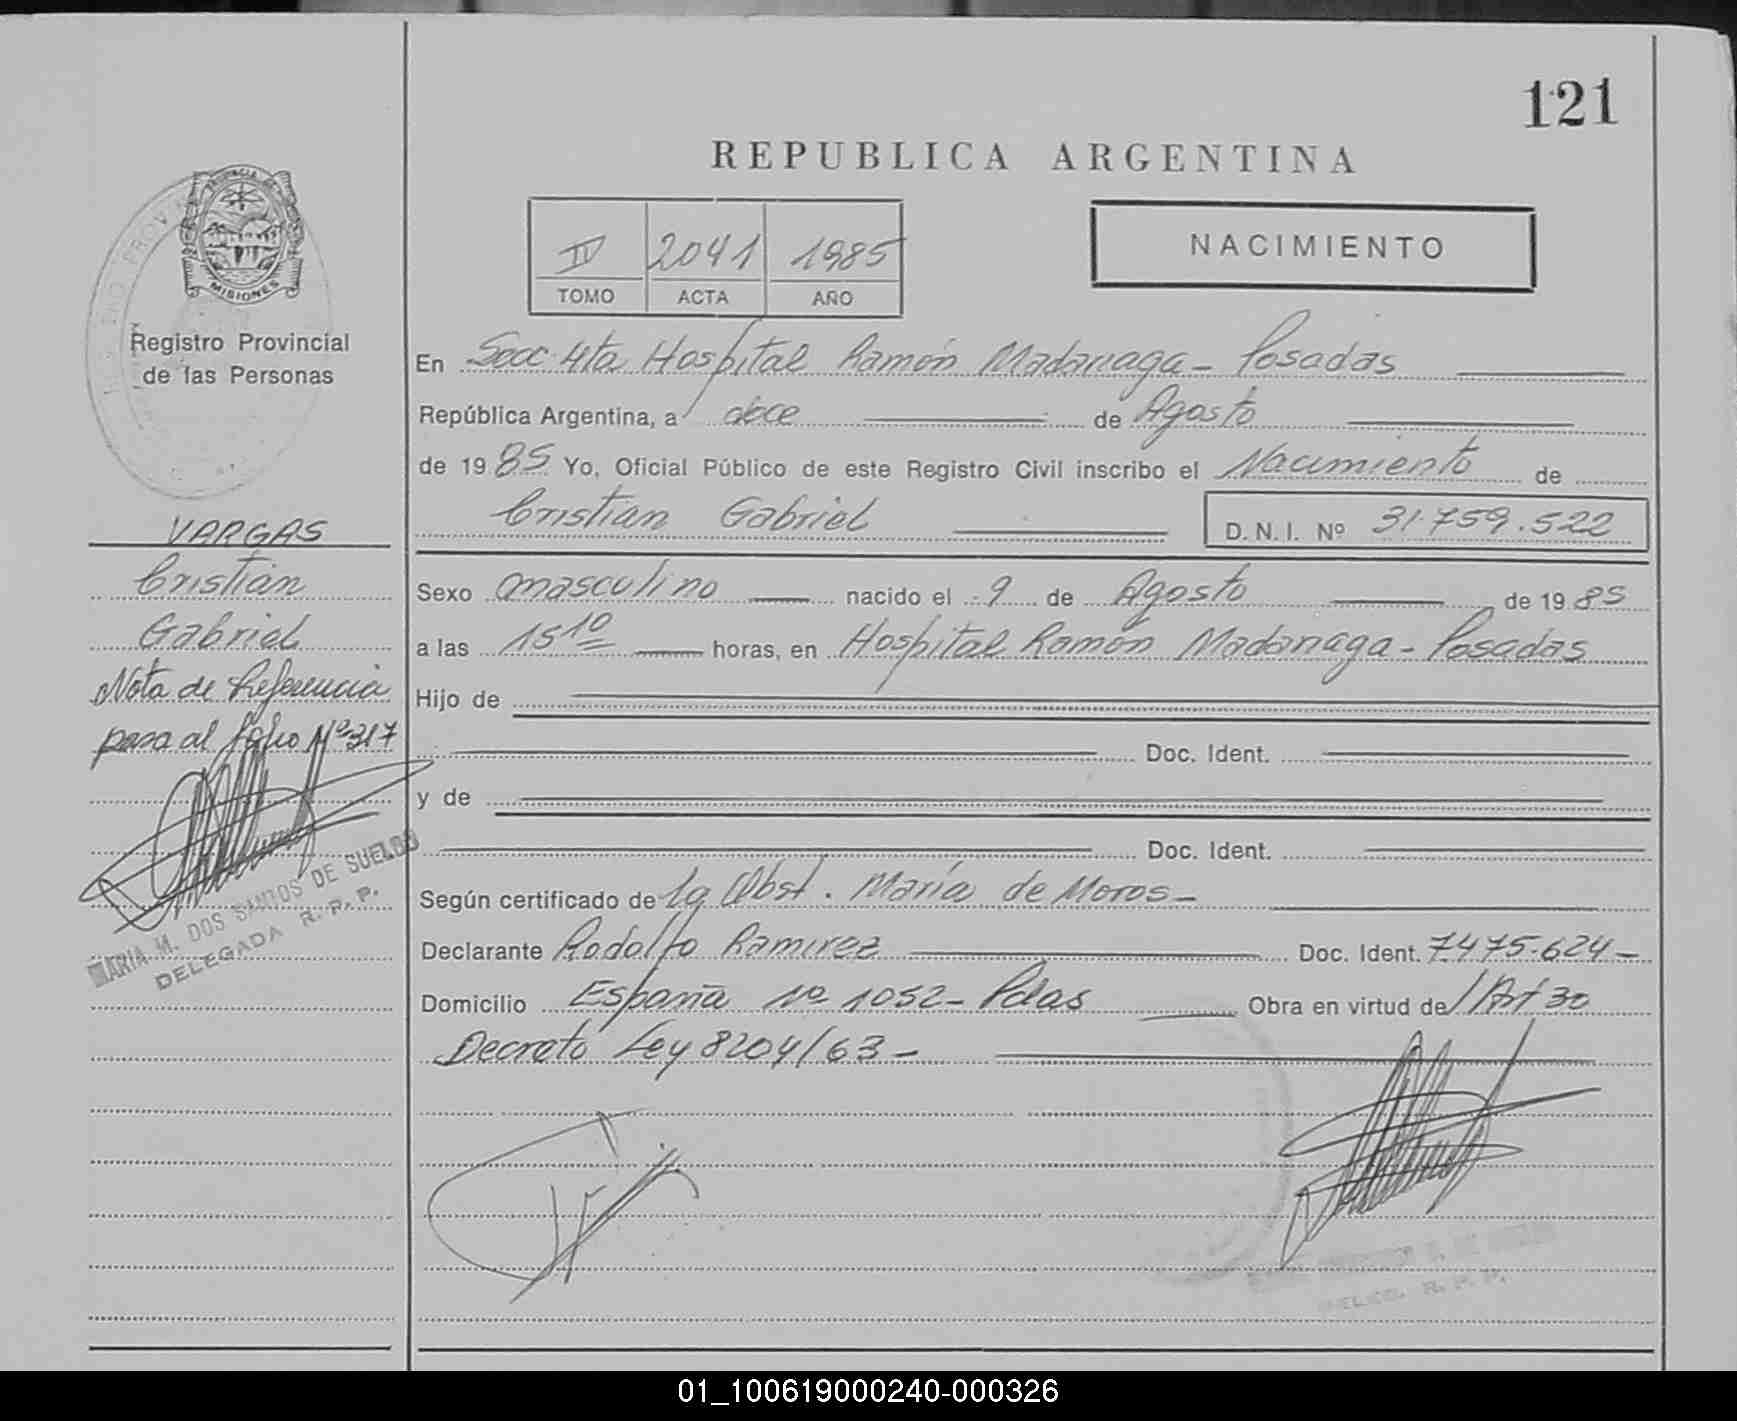 121
REPUBLICA ARGENTINA
PROVINCIA DE
MISIONES
Registro Provincial
de las Personas
IV 2041 1985
TOMO ACTA AÑO
NACIMIENTO
En Secc 4ta Hospital Ramón Madariaga - Posadas
República Argentina, a doce de Agosto
de 1985 Yo, Oficial Público de este Registro Civil inscribo el Nacimiento de
Cristian Gabriel D.N.I. Nº 31.759.522
VARGAS
Cristian
Gabriel
Nota de Referencia
pasa al folio Nº 317
MARIA M. DOS SANTOS DE SUELDO
DELEGADA R. P. P.
Sexo masculino nacido el 9 de Agosto de 1985
a las 15 10 horas, en Hospital Ramón Madariaga - Posadas
Hijo de
Doc. Ident.
y de
Doc. Ident.
Según certificado de la Obst. María de Moros -
Declarante Rodolfo Ramirez Doc. Ident. 7.475.624 -
Domicilio España Nº 1052 - Pdas Obra en virtud de/Art 30
Decreto Ley 8204/63 -
01_100619000240-000326